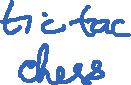 tic tac
chess